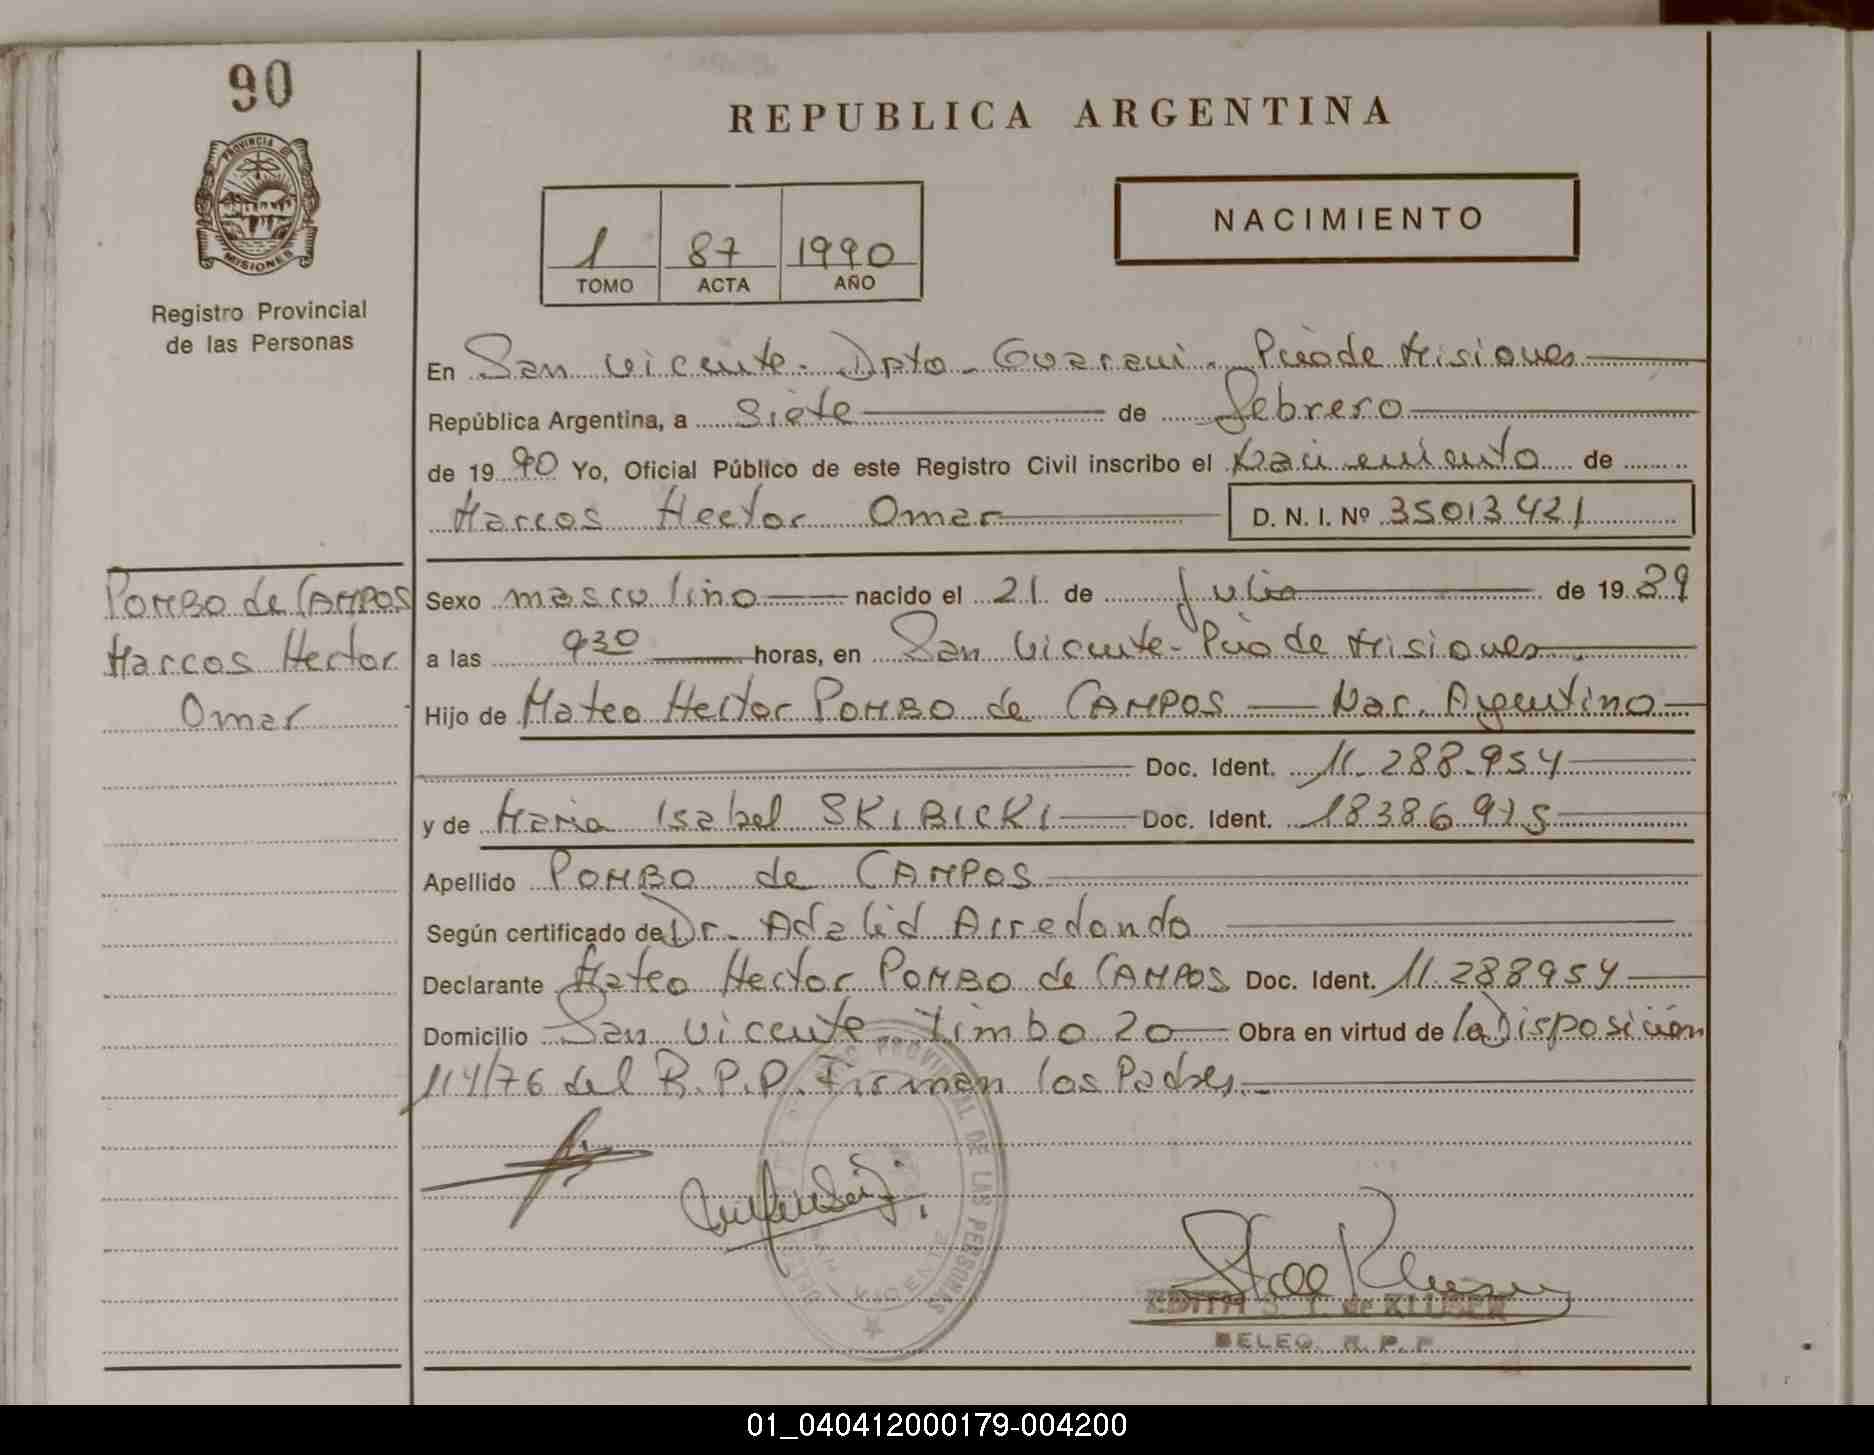 90
PROVINCIA DE
MISIONES
Registro Provincial
de las Personas
REPUBLICA ARGENTINA
1 87 1990
TOMO ACTA AÑO
NACIMIENTO
En San Vicente - Dpto - Guarani - Pcia de Misiones
República Argentina, a siete de febrero
de 1990 Yo, Oficial Público de este Registro Civil inscribo el Nacimiento de
Marcos Hector Omar D. N. I. Nº 35013421
POMBO de CAMPOS
Marcos Hector
Omar
Sexo masculino nacido el 21 de Julio de 1989
a las 930 horas, en San Vicente - Pcia de Misiones
Hijo de Mateo Hector POMBO de CAMPOS Nac. Argentino
Doc. Ident. 11.288.954
y de Maria Isabel SKIBICKI Doc. Ident. 18386975
Apellido POMBO de CAMPOS
Según certificado de Dr. Adalid Arredondo
Declarante Mateo Hector POMBO de CAMPOS Doc. Ident. 11.288954
Domicilio San Vicente Timbo 20 Obra en virtud de la Disposición
114/76 del R.P.P. Firman los Padres.-
PROVINCIAL DE LAS PERSONAS
SAN VICENTE
EDITH S. T. de KLUBER
DELEG. R. P. P.
01_040412000179-004200